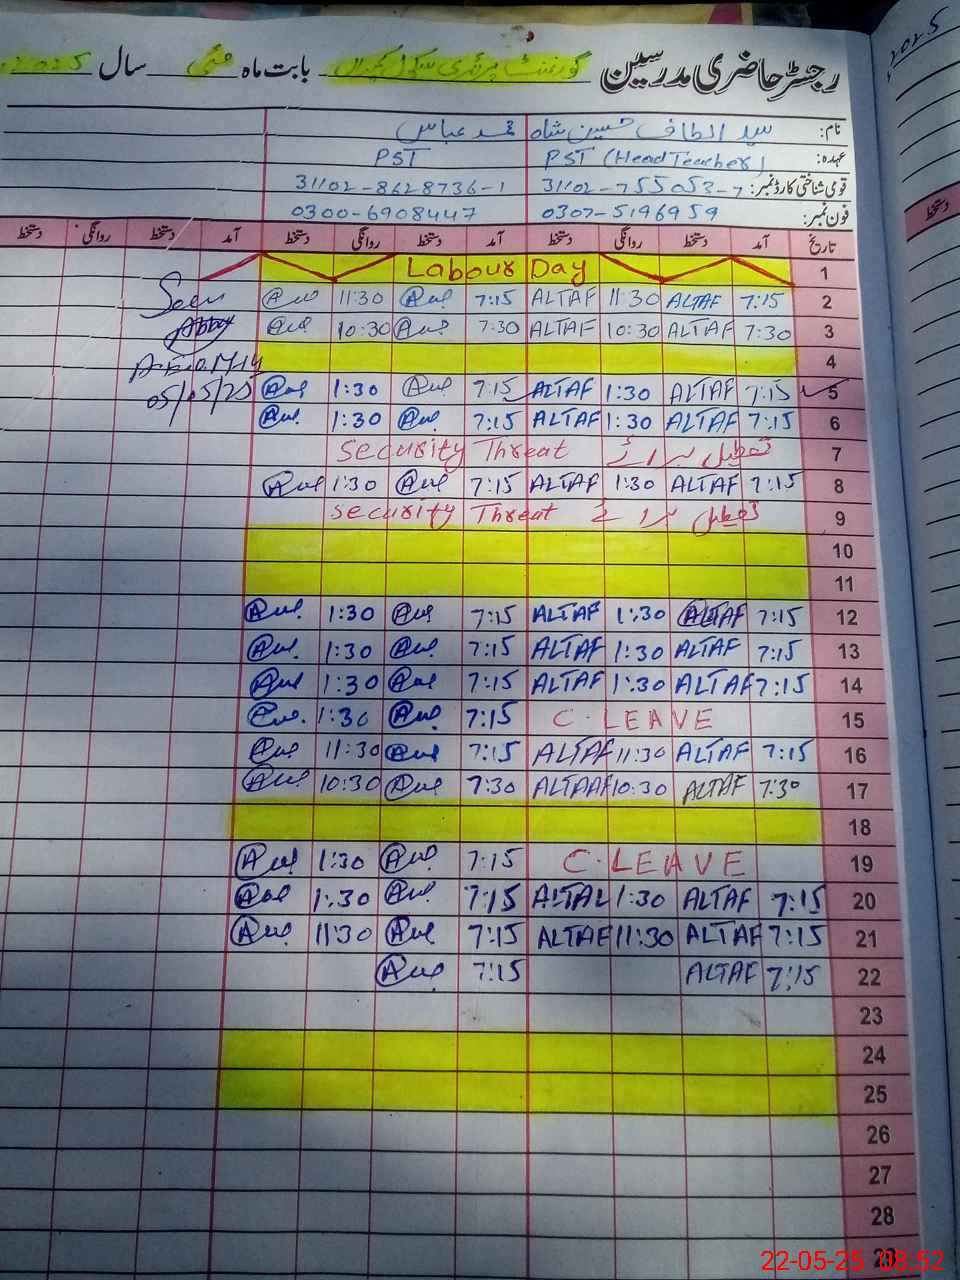 2025
رجسٹر حاضری مدرسین گورنمنٹ پرائمری سکول بابت ماہ مئی سال 2025
نام: سید الطاف حسین شاہ محمد عباس
عہدہ: PST (Head Teacher) PST
قومی شناختی کارڈ نمبر: 31102-8628736-1
فون نمبر: 0307-5196959 0300-6908447
تاریخ آمد دستخط روانگی دستخط آمد دستخط روانگی دستخط آمد دستخط روانگی دستخط
دستخط
1 Labour Day
2 7:15 ALTAF 11:30 ALTAF 7:15 11:30 Seen
3 7:30 ALTAF 10:30 ALTAF 7:30 10:30
4
5 7:15 ALTAF 1:30 ALTAF 7:15 1:30 05/05/25
6 7:15 ALTAF 1:30 ALTAF 7:15 1:30
7 تعطیل برائے Security Threat
8 7:15 ALTAF 1:30 ALTAF 7:15 1:30
9 تعطیل برائے Security Threat
10
11
12 7:15 ALTAF 1:30 ALTAF 7:15 1:30
13 7:15 ALTAF 1:30 ALTAF 7:15 1:30
14 7:15 ALTAF 1:30 ALTAF 7:15 1:30
15 C. LEAVE 7:15 1:30
16 7:15 ALTAF 11:30 ALTAF 7:15 11:30
17 7:30 ALTAF 10:30 ALTAAF 7:30 10:30
18
19 C. LEAVE 7:15 1:30
20 7:15 ALTAF 1:30 ALTAL 7:15 1:30
21 7:15 ALTAF 11:30 ALTAF 7:15 11:30
22 7:15 ALTAF 7:15
23
24
25
26
27
28
22-05-25 08:52